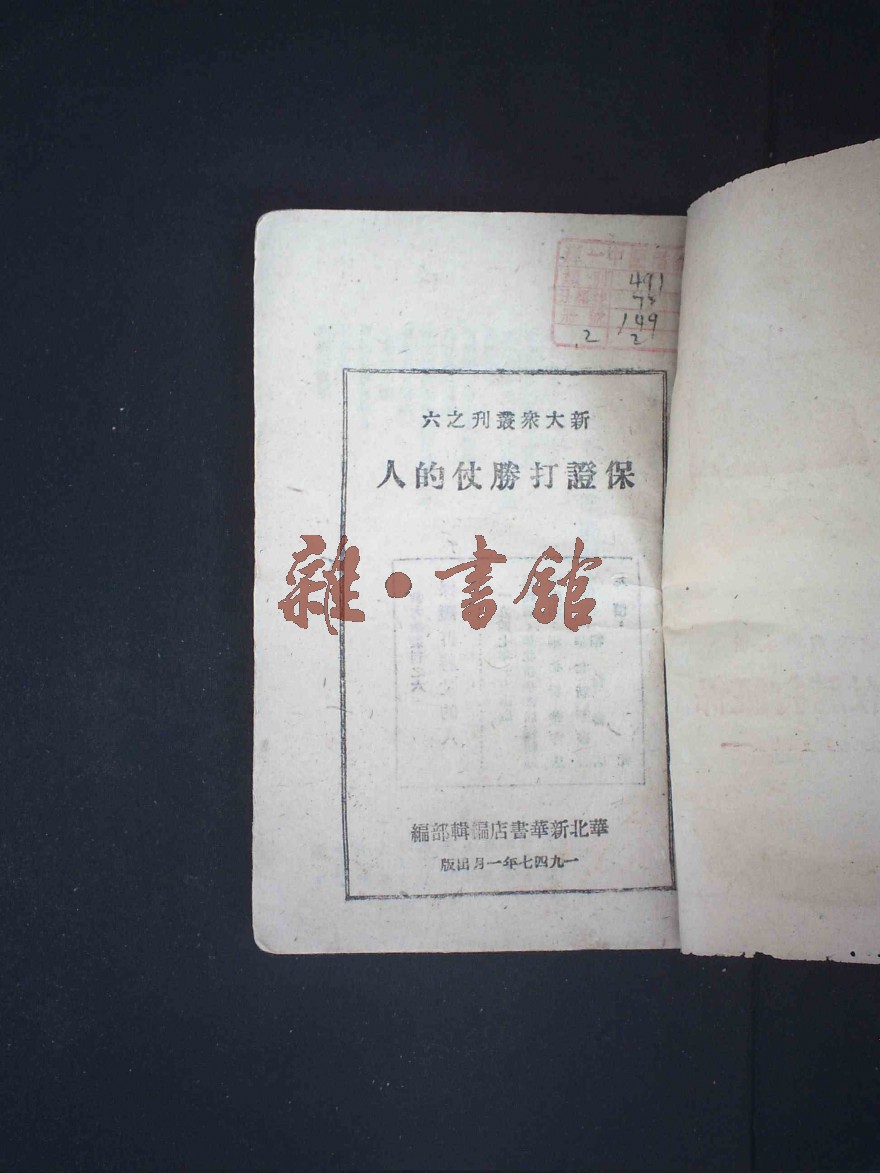 491
73
149
2
2
新大衆叢刊之六
保證打勝仗的人
雜·書館
華北新華書店編輯部編
一九四七年一月出版